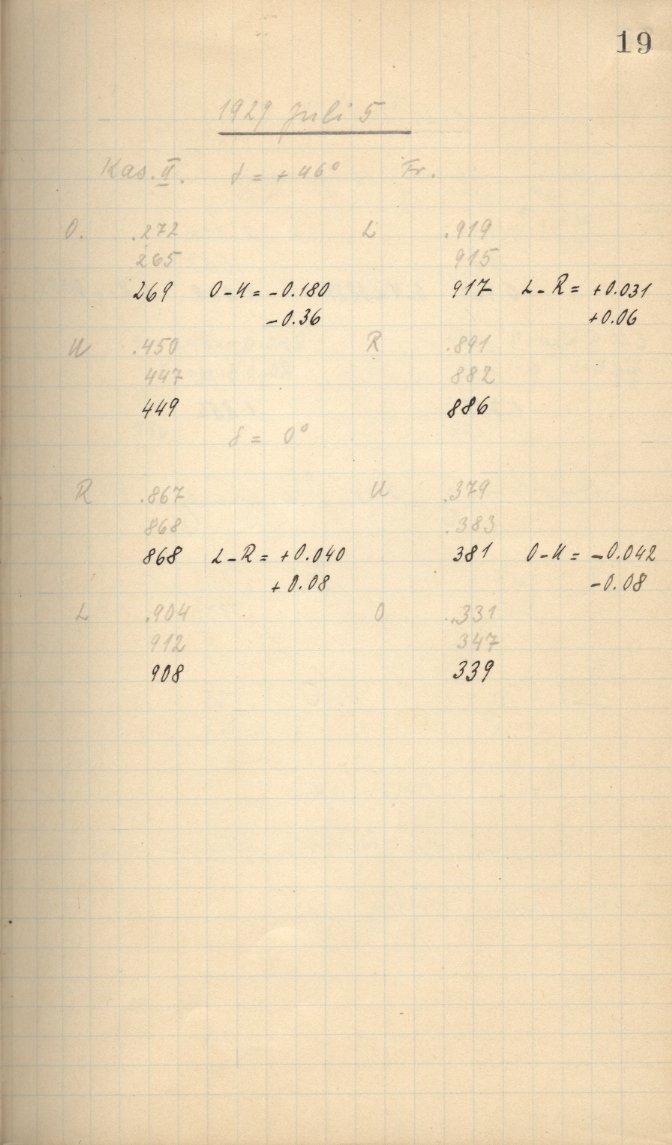 19
1929 Juli 5
Kas. II. δ = +46° Fr.
O. .272 L .919
265 915
269 O-U = -0.180 917 L-R = +0.031
-0.36 +0.06
U .450 R .891
447 882
449 886
δ = 0°
R .867 U .379
868 .383
868 L-R = +0.040 381 O-U = -0.042
+0.08 -0.08
L .904 O .331
912 347
908 339